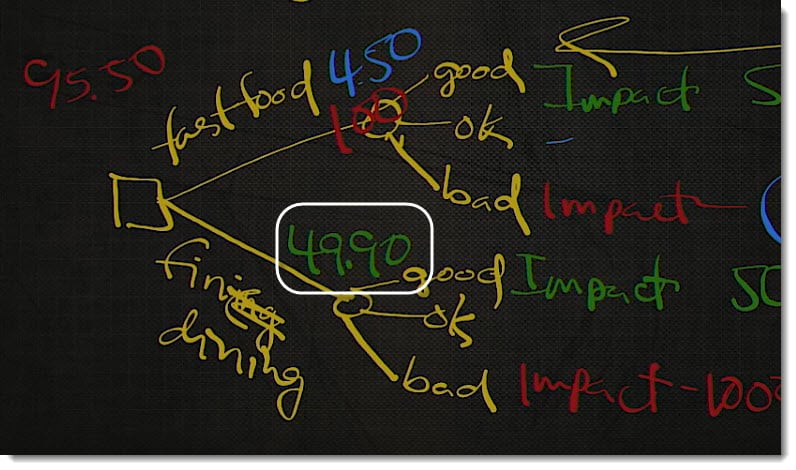 95.50
fastfood 450 good Impact
100
ok
bad Impact -
49.90
fining good Impact 50
dining ok
bad Impact -1000